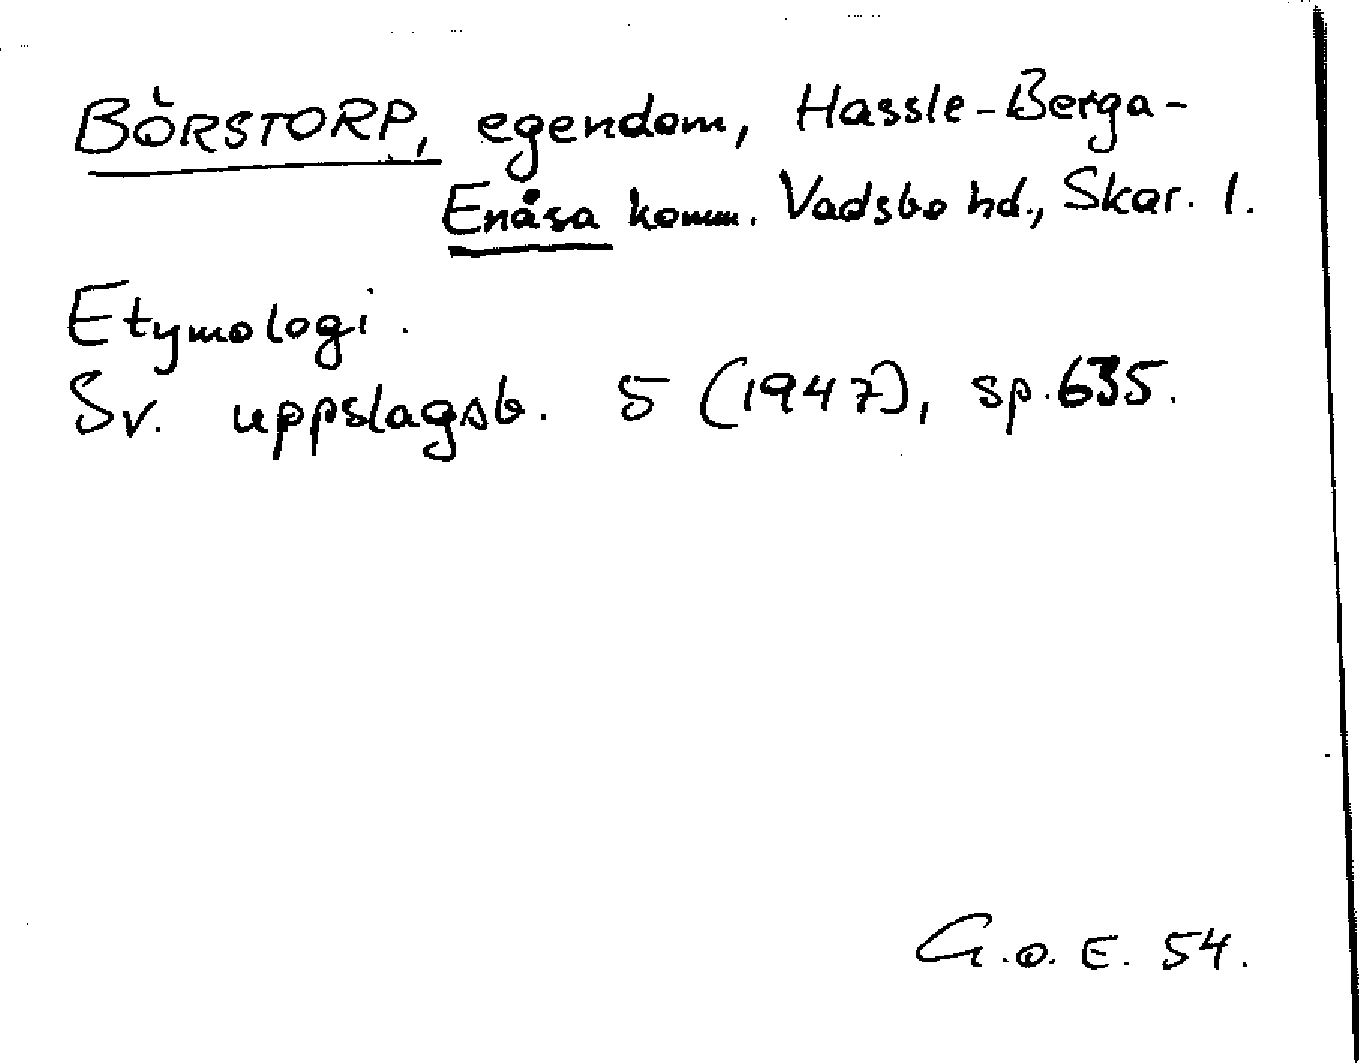 BÖRSTORP, egendom, Hassle-Berga-
Enåsa komm. Vadsbo hd., Skar. l.
Etymologi.
Sv. uppslagsb. 5 (1947), sp. 635.
G.o.E. 54.